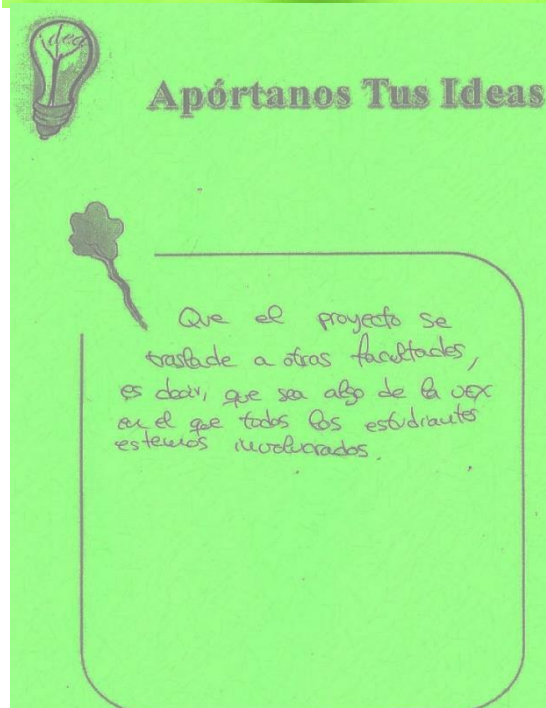 idea
Apórtanos Tus Ideas
Que el proyecto se
traslade a otras facultades,
es decir, que sea algo de la UEX
en el que todos los estudiantes
estemos involucrados.